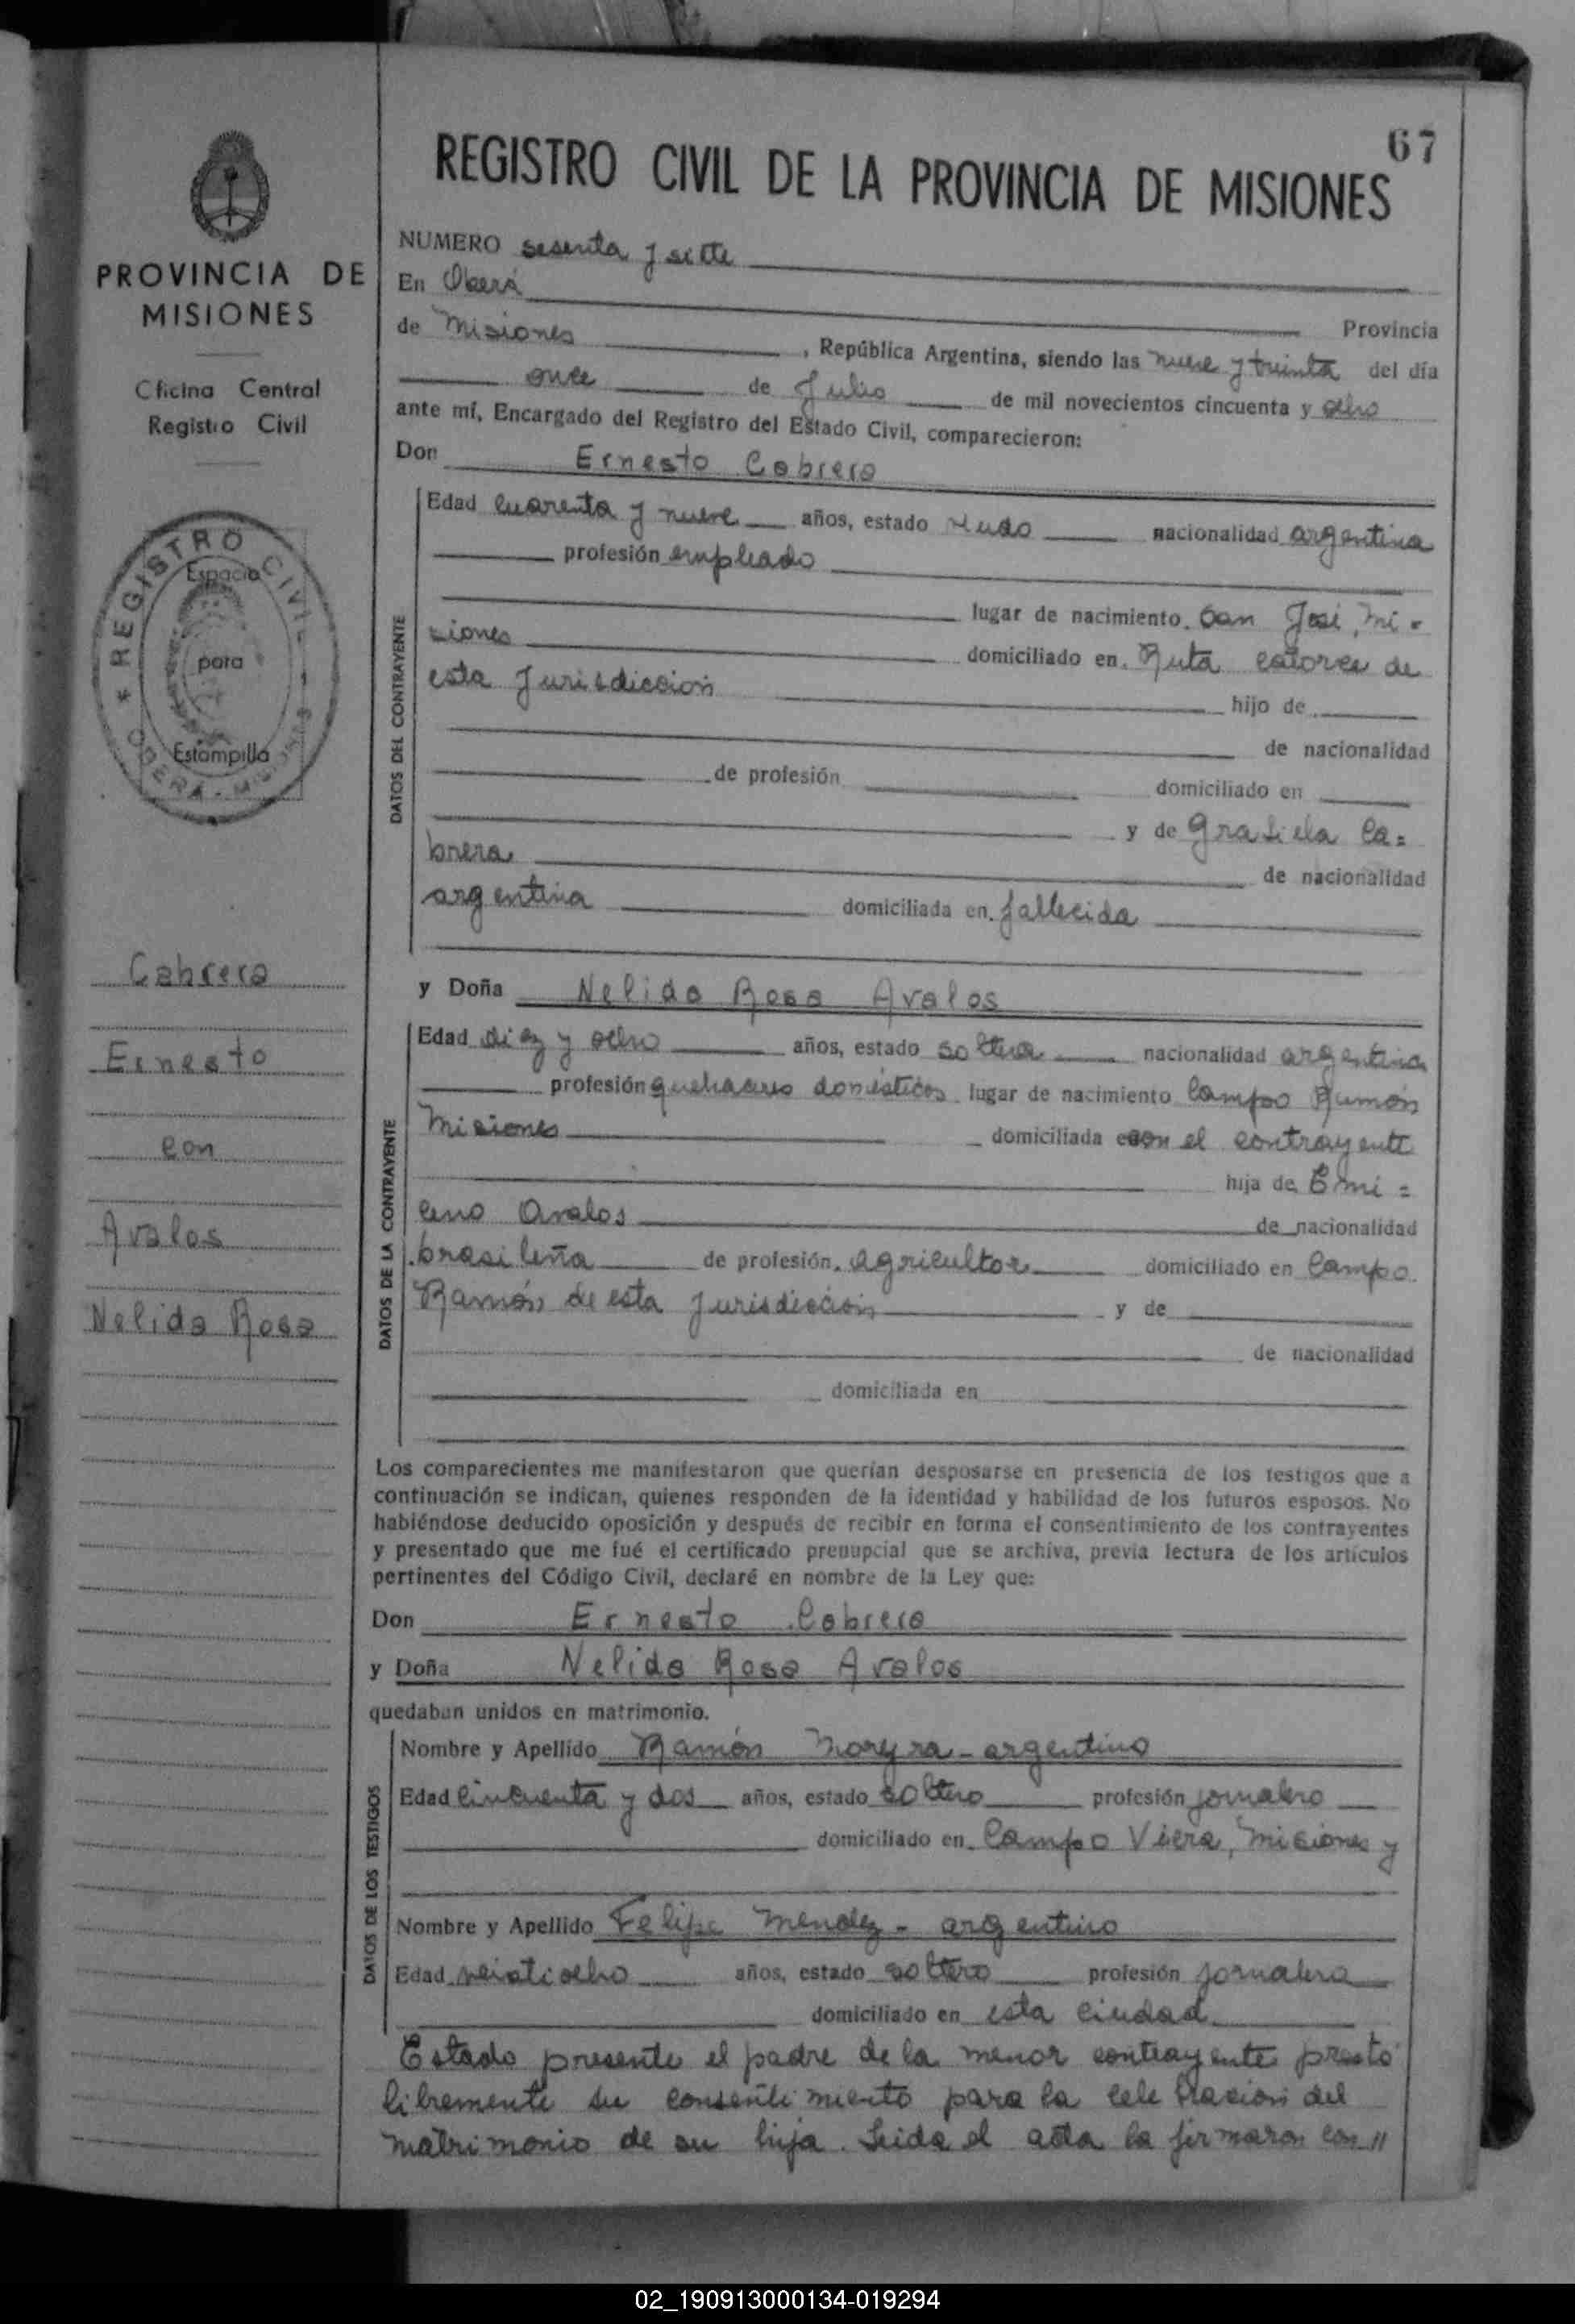 67
REGISTRO CIVIL DE LA PROVINCIA DE MISIONES
PROVINCIA DE
MISIONES
Oficina Central
Registro Civil
REGISTRO CIVIL
Espacio
para
Estampilla
OBERÁ - MISIONES
Cabrera
Ernesto
con
Avalos
Nelida Rosa
NUMERO sesenta y siete
En Oberá
Provincia
de Misiones, República Argentina, siendo las nueve y treinta del día
once de Julio de mil novecientos cincuenta y ocho
ante mí, Encargado del Registro del Estado Civil, comparecieron:
Don Ernesto Cabrera
DATOS DEL CONTRAYENTE
Edad cuarenta y nueve años, estado viudo nacionalidad argentina
profesión empleado
lugar de nacimiento San José, Mi-
siones domiciliado en Ruta catorce de
esta Jurisdicción hijo de
de nacionalidad
de profesión domiciliado en
y de Grasiela Ca=
brera de nacionalidad
argentina domiciliada en fallecida
y Doña Nelida Rosa Avalos
DATOS DE LA CONTRAYENTE
Edad diez y ocho años, estado soltera nacionalidad argentina
profesión quehaceres domésticos lugar de nacimiento Campo Ramón
Misiones domiciliada con el contrayente
hija de Emi=
leno Avalos de nacionalidad
brasileña de profesión agricultor domiciliado en Campo
Ramón de esta Jurisdicción y de
de nacionalidad
domiciliada en
Los comparecientes me manifestaron que querían desposarse en presencia de los testigos que a
continuación se indican, quienes responden de la identidad y habilidad de los futuros esposos. No
habiéndose deducido oposición y después de recibir en forma el consentimiento de los contrayentes
y presentado que me fué el certificado prenupcial que se archiva, previa lectura de los artículos
pertinentes del Código Civil, declaré en nombre de la Ley que:
Don Ernesto Cabrera
y Doña Nelida Rosa Avalos
quedaban unidos en matrimonio.
DATOS DE LOS TESTIGOS
Nombre y Apellido Ramón Moreyra - argentino
Edad cincuenta y dos años, estado soltero profesión jornalero
domiciliado en Campo Viera, Misiones y
Nombre y Apellido Felipe Mendez - argentino
Edad veintiocho años, estado soltero profesión jornalero
domiciliado en esta ciudad.
Estado presente el padre de la menor contrayente prestó
libremente su consentimiento para la celebración del
matrimonio de su hija. Leida el acta la firmaron con //
02_190913000134-019294